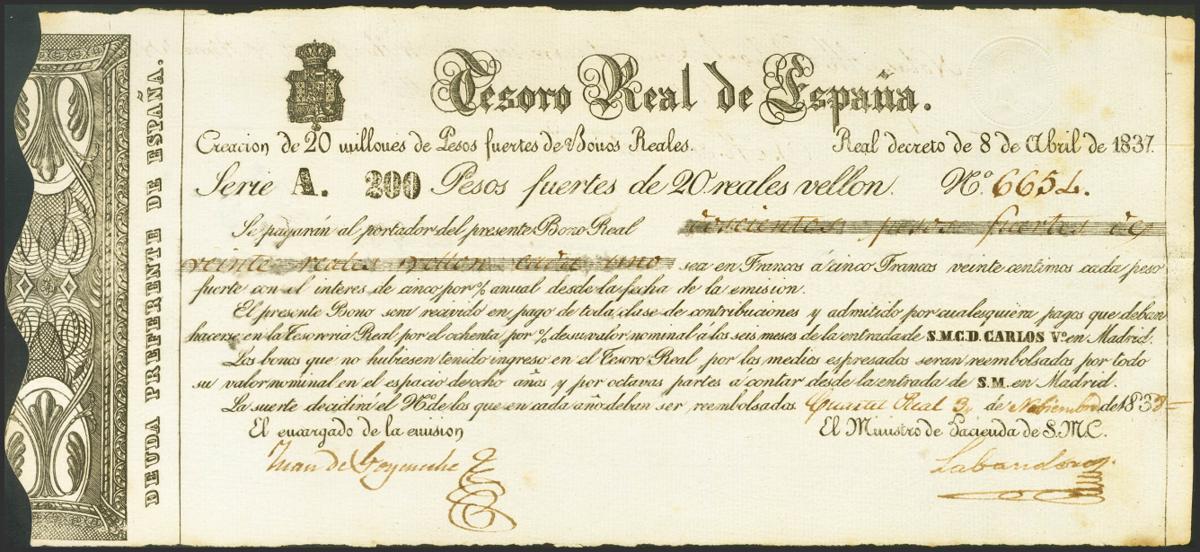 DEUDA PREFERENTE DE ESPAÑA.
Tesoro Real de España.
Creacion de 20 millones de Pesos fuertes de Bonos Reales. Real decreto de 8 de Abril de 1837.
Serie A. 200 Pesos fuertes de 20 reales vellon. Nº 6654.
Se pagarán al portador del presente Bono Real doscientos pesos fuertes de
veinte reales vellon cada uno sea en Francos á cinco Francos veinte centimos cada peso
fuerte con el interes de cinco por % anual desde la fecha de la emision.
El presente Bono sera recivido en pago de toda clase de contribuciones y admitido por cualesquiera pagos que deban
hacerse en la Tesoreria Real por el ochenta por % de su valor nominal á los seis meses de la entrada de S.M.C.D. CARLOS Vº en Madrid.
Los bonos que no hubiesen tenido ingreso en el Tesoro Real por los medios espresados seran reembolsados por todo
su valor nominal en el espacio de ocho años y por octavas partes á contar desde la entrada de S.M. en Madrid.
La suerte decidirá el Nº de los que en cada año deban ser reembolsados. Cuartel Real 3, de Nobiembre de 1838
El encargado de la emision El Ministro de Hacienda de S.M.C.
Juan de Goyeneche Labandero